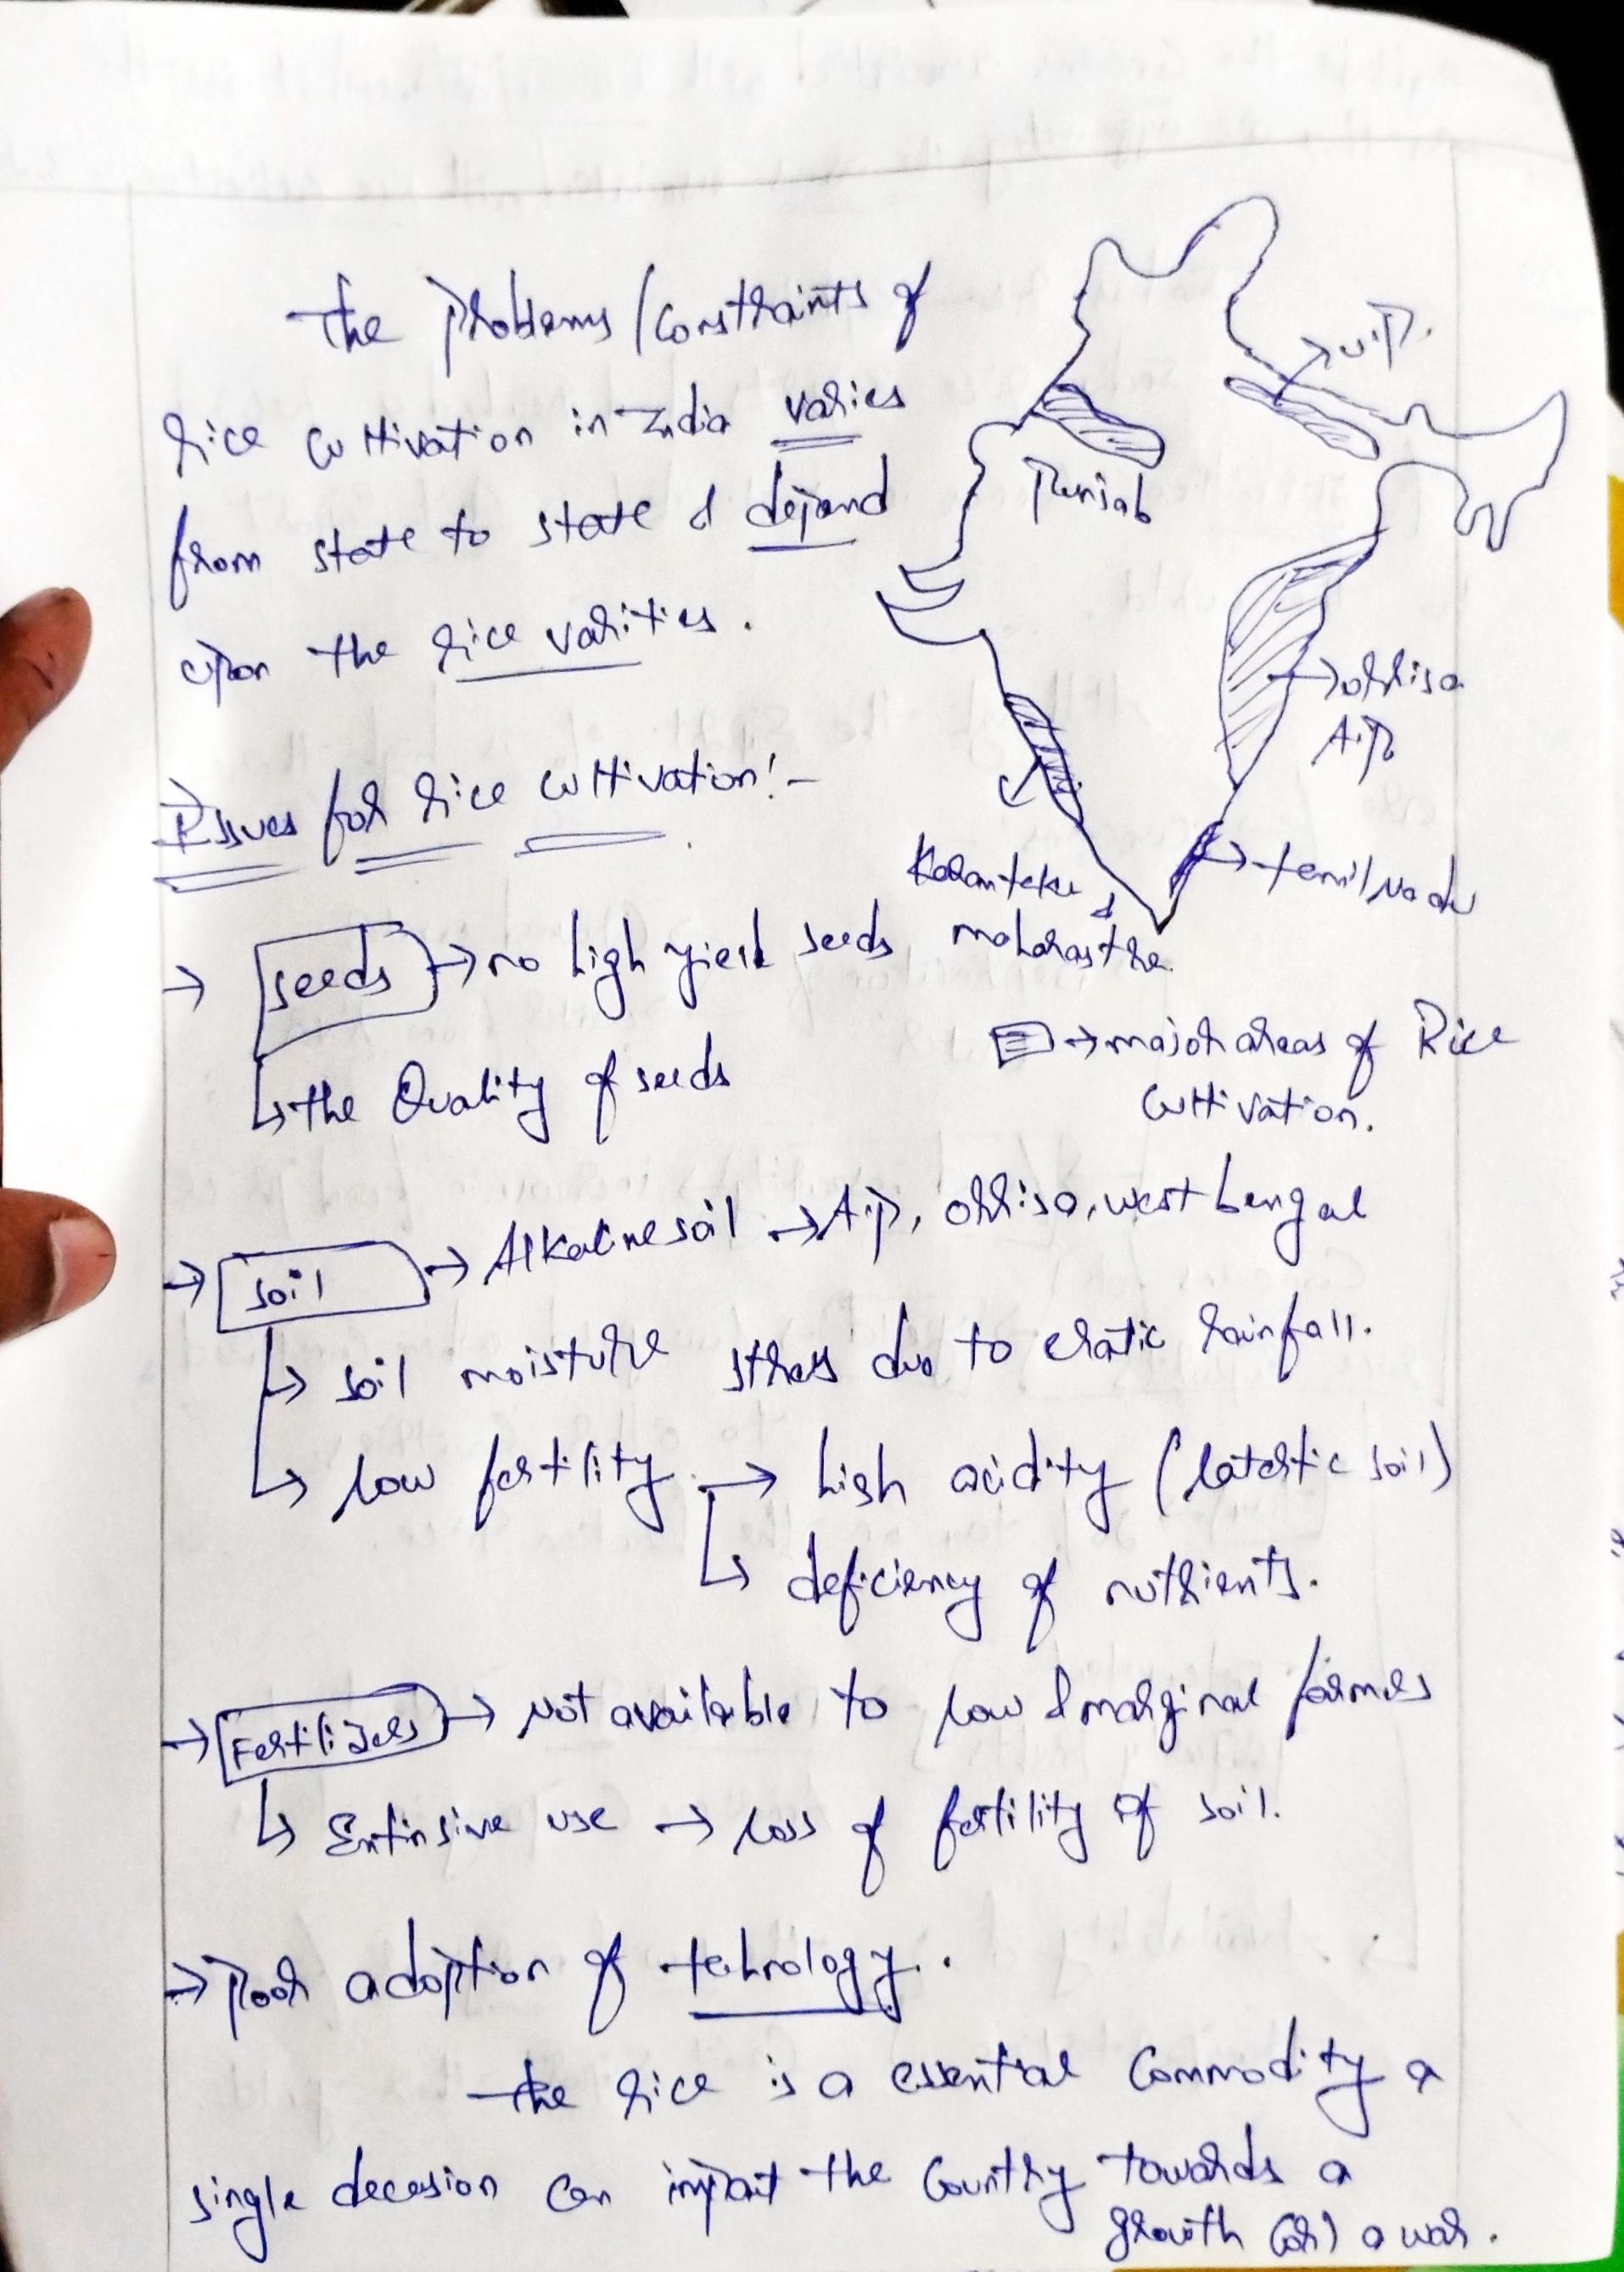 The Problems / Constraints of
rice cultivation in India varies
from state to state & depend
upon the rice varities.
U.P.
Punjab
orrisa
A.P
Karanteka &
maharastra
tamil Nadu
→ major areas of Rice
cultivation.
Issues for rice cultivation:-
→ seeds → no high yield seeds
↳ the Quality of seeds
→ soil → Alkaline soil → A.P, orrisa, west bengal
↳ soil moisture stress due to eratic rainfall.
↳ low fertility → high acidity (latertic soil)
↳ deficiency of nutrients.
→ Fertilizers → Not available to low & marginal farmers
↳ Extinsive use → loss of fertility of soil.
→ Poor adoption of tehnology.
The rice is a essential Commodity a
single decesion can impact the Country towards a
growth (or) a war.